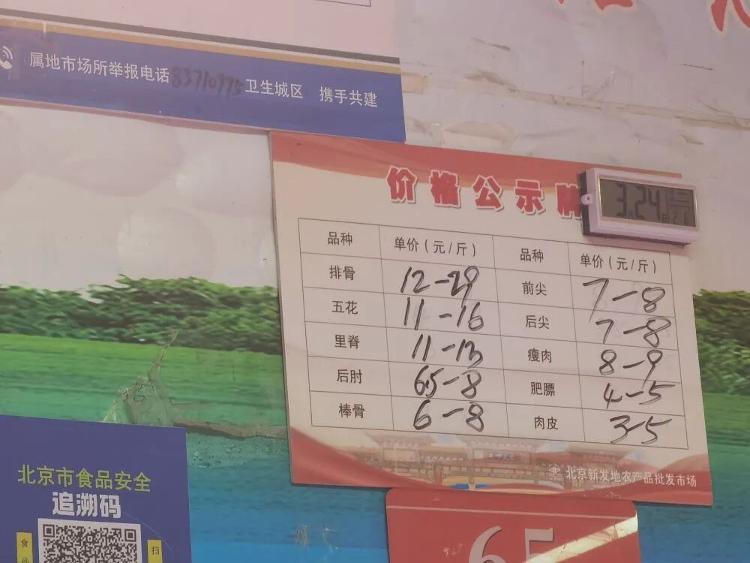 属地市场所举报电话83710775 卫生城区 携手共建
价格公示牌
3.24
品种 单价(元/斤) 品种 单价(元/斤)
排骨 12-29 前尖 7-8
五花 11-16 后尖 7-8
里脊 11-13 瘦肉 8-9
后肘 6.5-8 肥膘 4-5
棒骨 6-8 肉皮 3-5
北京新发地农产品批发市场
北京市食品安全
追溯码
食
扫
65